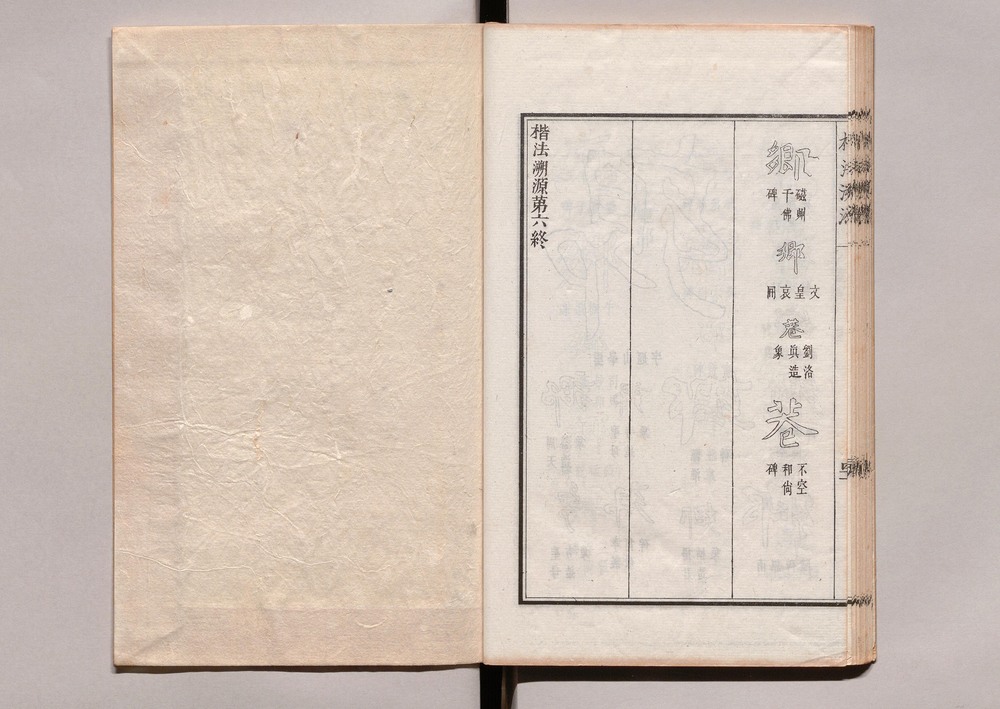 鄉
磁州
千佛
碑
鄉
文皇哀冊
巷
劉洛
眞造
象
巷
不空
和尙
碑
楷法溯源第六終